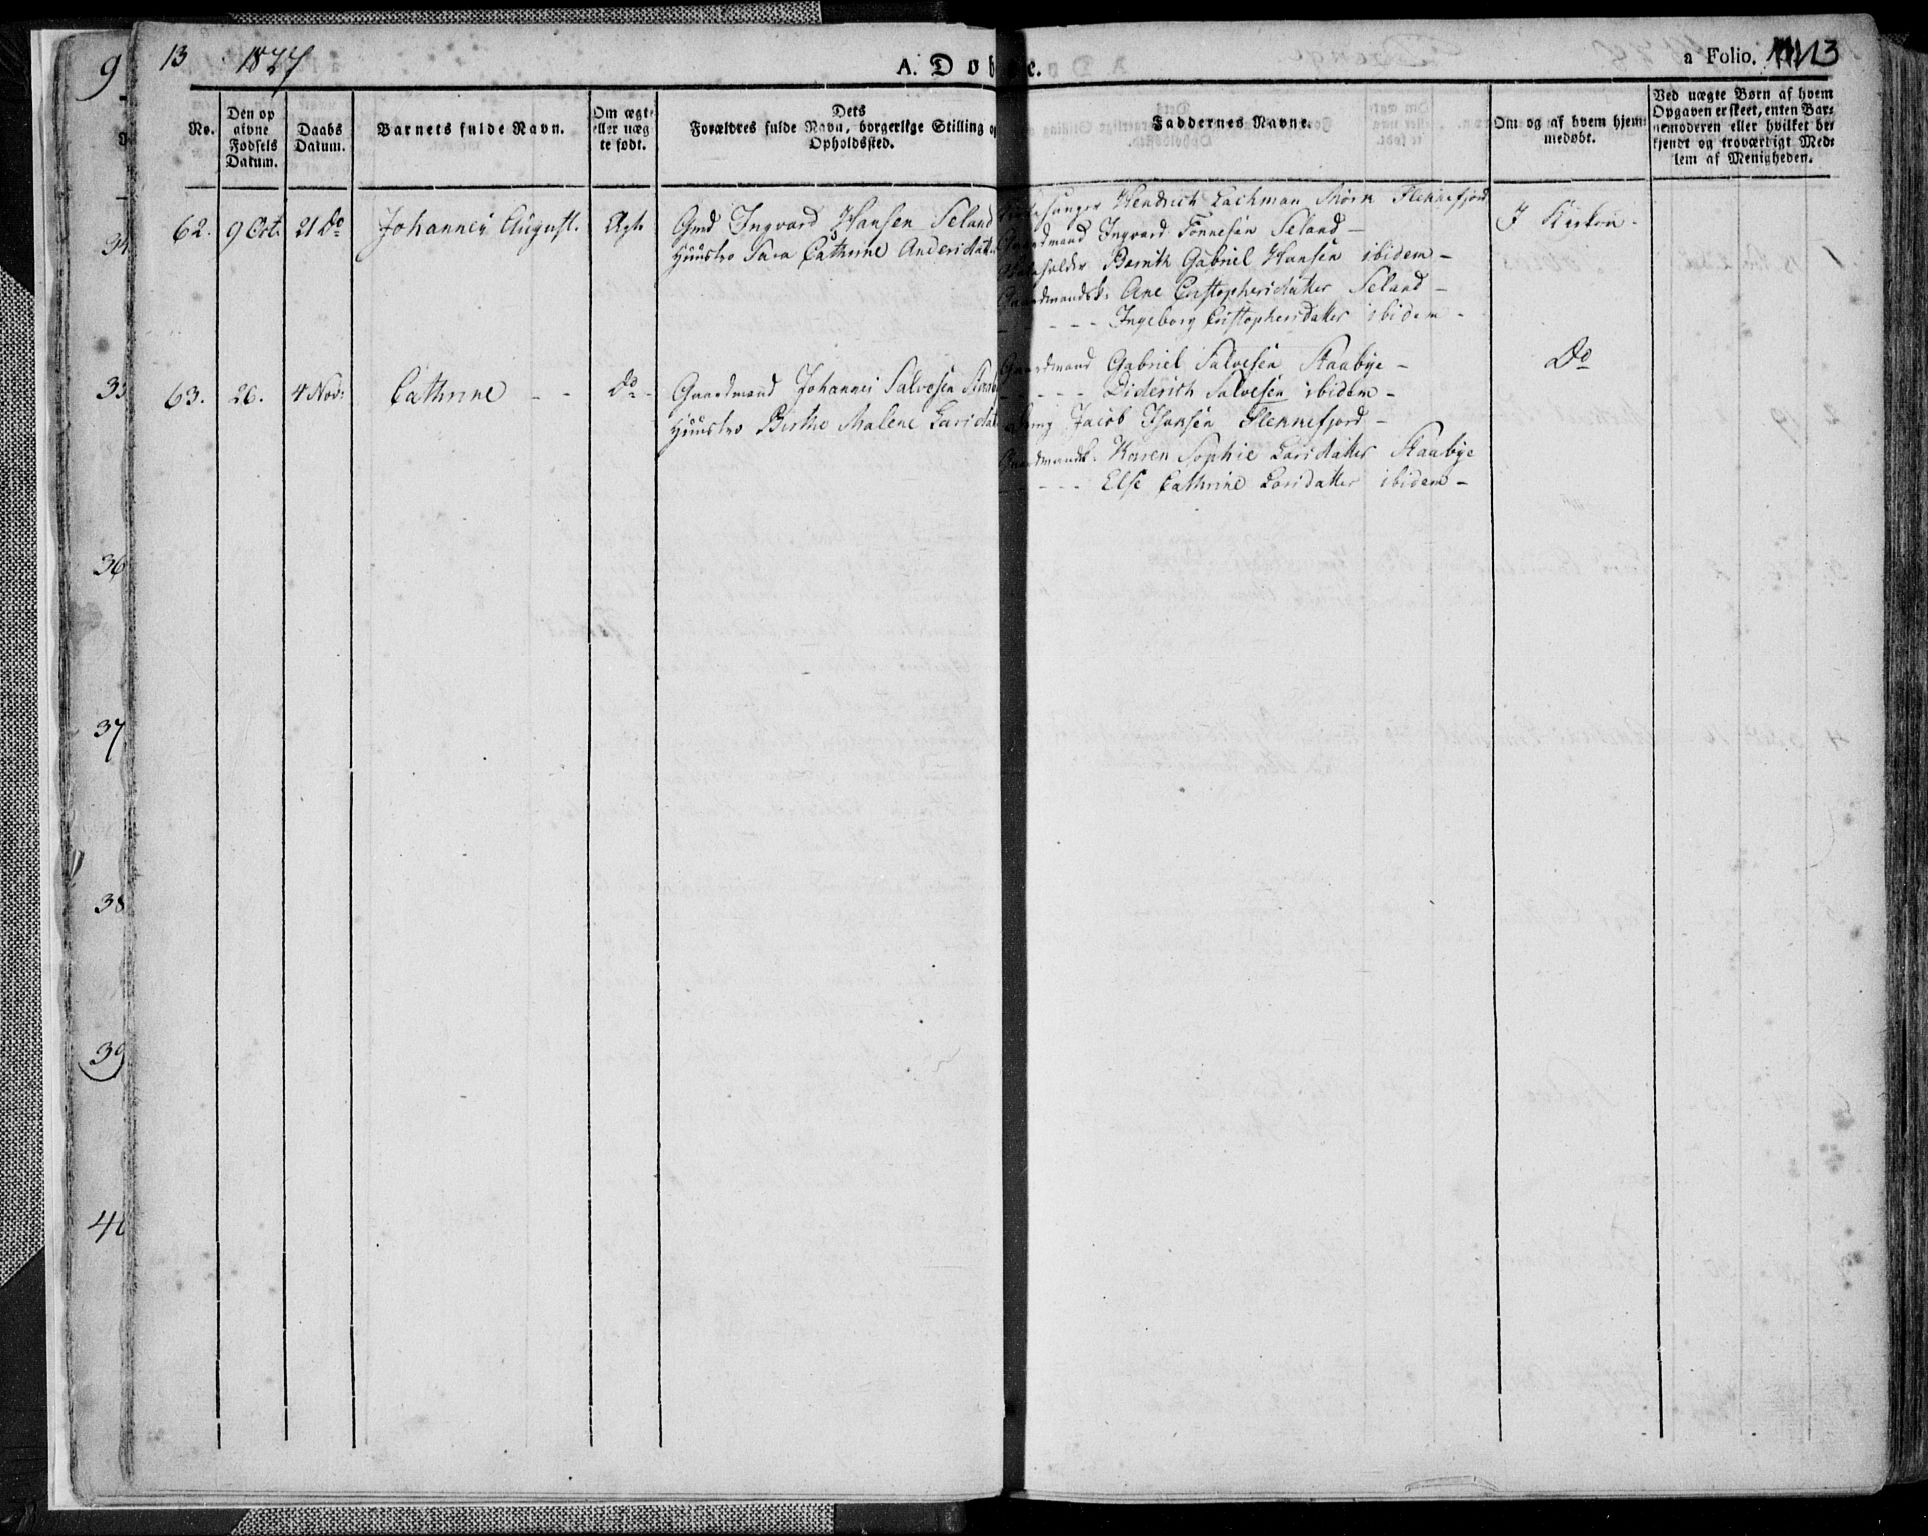 9 13 1827 A. Døbte. a Folio. 13
No.
Den op
givne
Fødsels
Datum.
Daabs
Datum.
Barnets fulde Navn.
Om ægte
eller uæg
te født.
Dets
Forældres fulde Navn, borgerlige Stilling og
Opholdssted.
Faddernes Navne.
Om og af hvem hjem:
medøbt.
Ved uægte Børn af hvem
Opgaven er skeet, enten Bar:
nemoderen eller hvilket be:
kjendt og troværdigt Med:
lem af Menigheden.
62. 9 Oct. 21 Do Johannes August. Ægte
Gmd Ingvard Hansen Seland
Huustro Sara Cathrine Andersdat
Hendrich Lachman Mørk Flekkefjord
Gaardmand Ingvard Tønnesen Seland -
Bernth Gabriel Hansen ibidem -
Gaardmandsk: Ane Cristophersdatter Seland -
- - - Ingeborg Cristophersdatter ibidem -
I Kirken -
63. 26. 4 Nov: Cathrine - - Do -
Gaardmand Johannes Salvesen
Huustro Birthe Malene Larsdat
Gaardmand Gabriel Salvesen Staabye -
- - - Diderich Salvesen ibidem -
Jacob Hansen Flekkefjord -
Gaardmandsk: Karen Sophie Larsdatter Staabye
- - - Else Cathrine Larsdatter ibidem -
Do
34
35
36
37
38
39
40